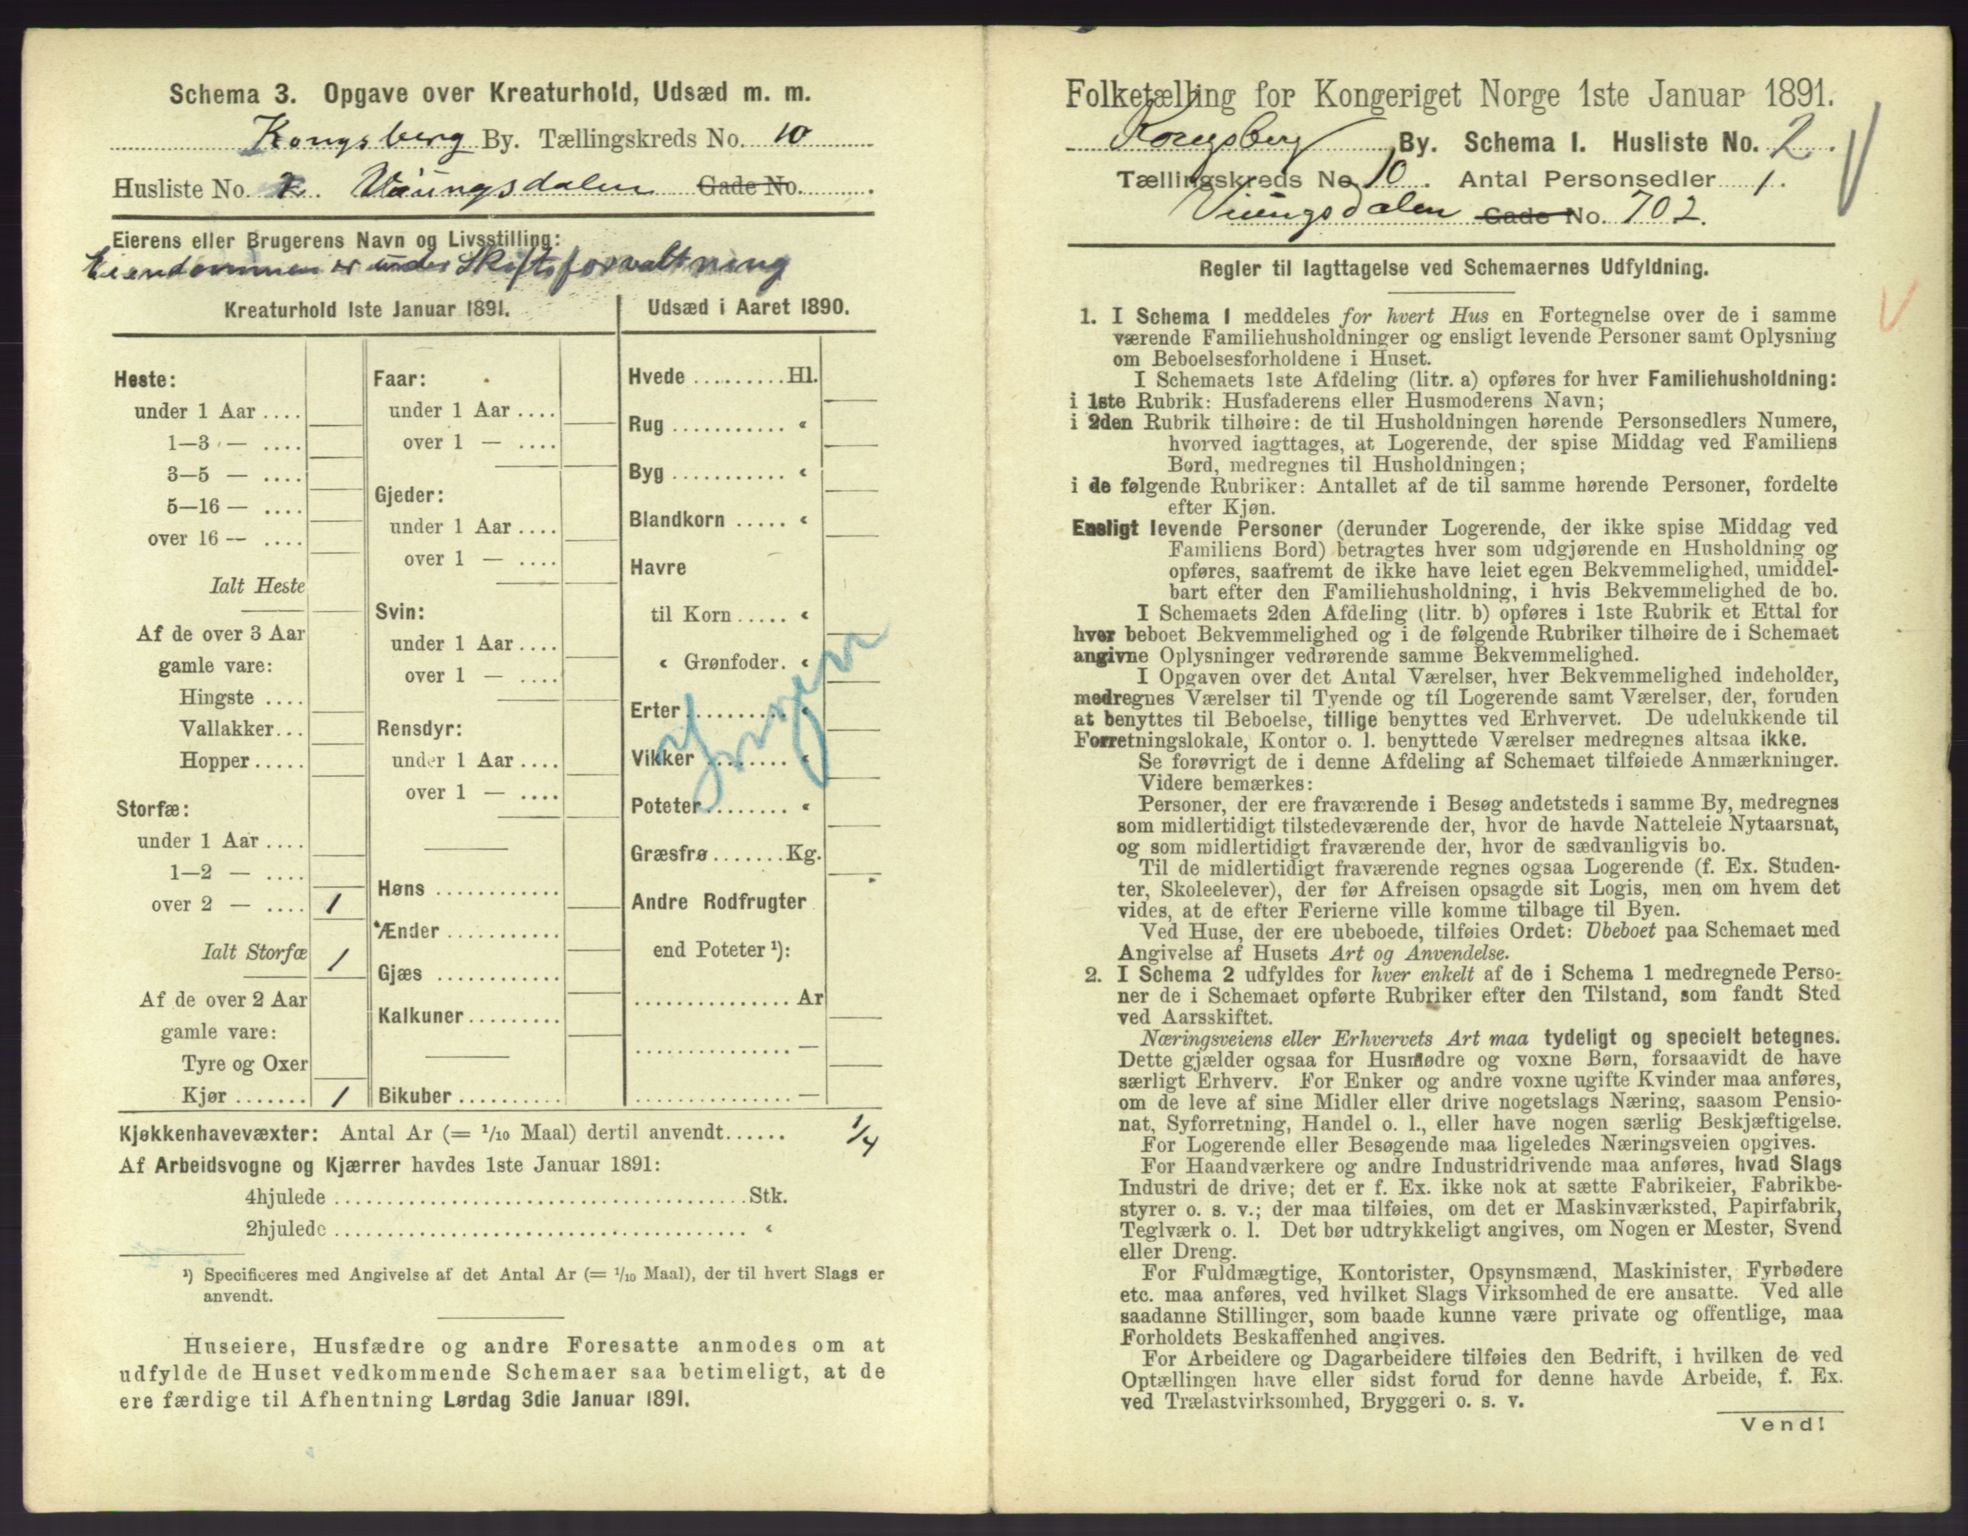 Schema 3. Opgave over Kreaturhold, Udsæd m. m.
Kongsberg By. Tællingskreds No. 10
Husliste No. 2. Vaiungsdalen Gade No.
Eierens eller Brugerens Navn og Livsstilling:
Eiendommen er under Skiftsforvaltning
Kreaturhold 1ste Januar 1891.
Heste:
under 1 Aar ....
1—3 — ....
3—5 — ....
5—16 — ....
over 16 — ....
Ialt Heste
Af de over 3 Aar
gamle vare:
Hingste ....
Vallakker...
Hopper.....
Storfæ:
under 1 Aar ....
1—2 — ....
over 2 — .... 1
Ialt Storfæ 1
Af de over 2 Aar
gamle vare:
Tyre og Oxer
Kjør ....... 1
Faar:
under 1 Aar ....
over 1 — ....
Gjeder:
under 1 Aar ....
over 1 — ....
Svin:
under 1 Aar....
over 1 — ....
Rensdyr:
under 1 Aar ....
over 1 — ....
Høns ............
Ænder ...........
Gjæs ............
Kalkuner.........
Bikuber ..........
Udsæd i Aaret 1890.
Hvede .........Hl.
Rug ........... «
Byg ........... «
Blandkorn ..... «
Havre
til Korn ..... «
« Grønfoder. «
Erter ......... «
Vikker ........ «
Poteter........ «
Græsfrø.......Kg.
Andre Rodfrugter
end Poteter ¹):
............... Ar
............... —
............... —
Ingen
Kjøkkenhavevæxter: Antal Ar (= 1/10 Maal) dertil anvendt...... 1/4
Af Arbeidsvogne og Kjærrer havdes 1ste Januar 1891:
4hjulede ........................................ Stk.
2hjulede ........................................ «
¹) Specificeres med Angivelse af det Antal Ar (= 1/10 Maal), der til hvert Slags er
anvendt.
Huseiere, Husfædre og andre Foresatte anmodes om at
udfylde de Huset vedkommende Schemaer saa betimeligt, at de
ere færdige til Afhentning Lørdag 3die Januar 1891.
Folketælling for Kongeriget Norge 1ste Januar 1891.
Kongsberg By. Schema I. Husliste No. 2.
Tællingskreds No 10. Antal Personsedler 1.
Viungsdalen Gade No. 702.
Regler til Iagttagelse ved Schemaernes Udfyldning.
1. I Schema 1 meddeles for hvert Hus en Fortegnelse over de i samme
værende Familiehusholdninger og ensligt levende Personer samt Oplysning
om Beboelsesforholdene i Huset.
I Schemaets 1ste Afdeling (litr. a) opføres for hver Familiehusholdning:
i 1ste Rubrik: Husfaderens eller Husmoderens Navn;
i 2den Rubrik tilhøire: de til Husholdningen hørende Personsedlers Numere,
hvorved iagttages, at Logerende, der spise Middag ved Familiens
Bord, medregnes til Husholdningen;
i de følgende Rubriker: Antallet af de til samme hørende Personer, fordelte
efter Kjøn.
Ensligt levende Personer (derunder Logerende, der ikke spise Middag ved
Familiens Bord) betragtes hver som udgjørende en Husholdning og
opføres, saafremt de ikke have leiet egen Bekvemmelighed, umiddel-
bart efter den Familiehusholdning, i hvis Bekvemmelighed de bo.
I Schemaets 2den Afdeling (litr. b) opføres i 1ste Rubrik et Ettal for
hver beboet Bekvemmelighed og i de følgende Rubriker tilhøire de i Schemaet
angivne Oplysninger vedrørende samme Bekvemmelighed.
I Opgaven over det Antal Værelser, hver Bekvemmelighed indeholder,
medregnes Værelser til Tyende og til Logerende samt Værelser, der, foruden
at benyttes til Beboelse, tillige benyttes ved Erhvervet. De udelukkende til
Forretningslokale, Kontor o. l. benyttede Værelser medregnes altsaa ikke.
Se forøvrigt de i denne Afdeling af Schemaet tilføiede Anmærkninger.
Videre bemærkes:
Personer, der ere fraværende i Besøg andetsteds i samme By, medregnes
som midlertidigt tilstedeværende der, hvor de havde Natteleie Nytaarsnat,
og som midlertidigt fraværende der, hvor de sædvanligvis bo.
Til de midlertidigt fraværende regnes ogsaa Logerende (f. Ex. Studen-
ter, Skoleelever), der før Afreisen opsagde sit Logis, men om hvem det
vides, at de efter Ferierne ville komme tilbage til Byen.
Ved Huse, der ere ubeboede, tilføies Ordet: Ubeboet paa Schemaet med
Angivelse af Husets Art og Anvendelse.
2. I Schema 2 udfyldes for hver enkelt af de i Schema 1 medregnede Perso-
ner de i Schemaet opførte Rubriker efter den Tilstand, som fandt Sted
ved Aarsskiftet.
Næringsveiens eller Erhvervets Art maa tydeligt og specielt betegnes.
Dette gjælder ogsaa for Husmødre og voxne Børn, forsaavidt de have
særligt Erhverv. For Enker og andre voxne ugifte Kvinder maa anføres,
om de leve af sine Midler eller drive nogetslags Næring, saasom Pensio-
nat, Syforretning, Handel o. l., eller have nogen særlig Beskjæftigelse.
For Logerende eller Besøgende maa ligeledes Næringsveien opgives.
For Haandværkere og andre Industridrivende maa anføres, hvad Slags
Industri de drive; det er f. Ex. ikke nok at sætte Fabrikeier, Fabrikbe-
styrer o. s. v.; der maa tilføies, om det er Maskinværksted, Papirfabrik,
Teglværk o. l. Det bør udtrykkeligt angives, om Nogen er Mester, Svend
eller Dreng.
For Fuldmægtige, Kontorister, Opsynsmænd, Maskinister, Fyrbødere
etc. maa anføres, ved hvilket Slags Virksomhed de ere ansatte. Ved alle
saadanne Stillinger, som baade kunne være private og offentlige, maa
Forholdets Beskaffenhed angives.
For Arbeidere og Dagarbeidere tilføies den Bedrift, i hvilken de ved
Optællingen have eller sidst forud for denne havde Arbeide, f. Ex.
ved Trælastvirksomhed, Bryggeri o. s. v.
Vend!